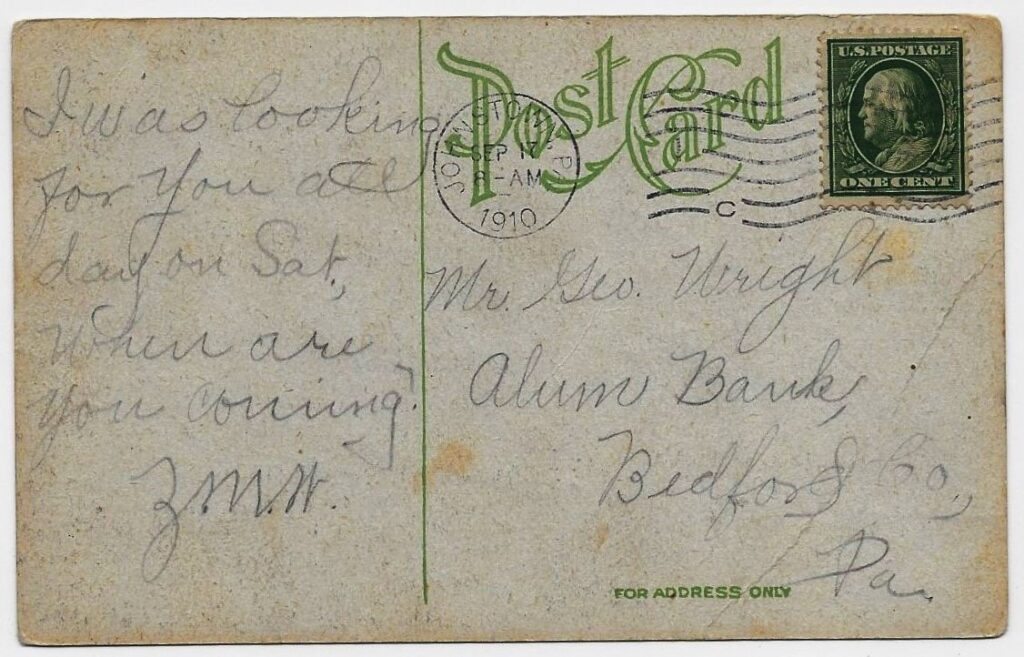 Post Card
U.S. POSTAGE
ONE CENT
JOHNSTOWN, PA.
SEP 17
8-AM
1910
C
I was looking
for you all
day on Sat.,
When are
you coming?
Z.M.W.
Mr. Geo. Wright
Alum Bank,
Bedford Co.,
Pa.
FOR ADDRESS ONLY